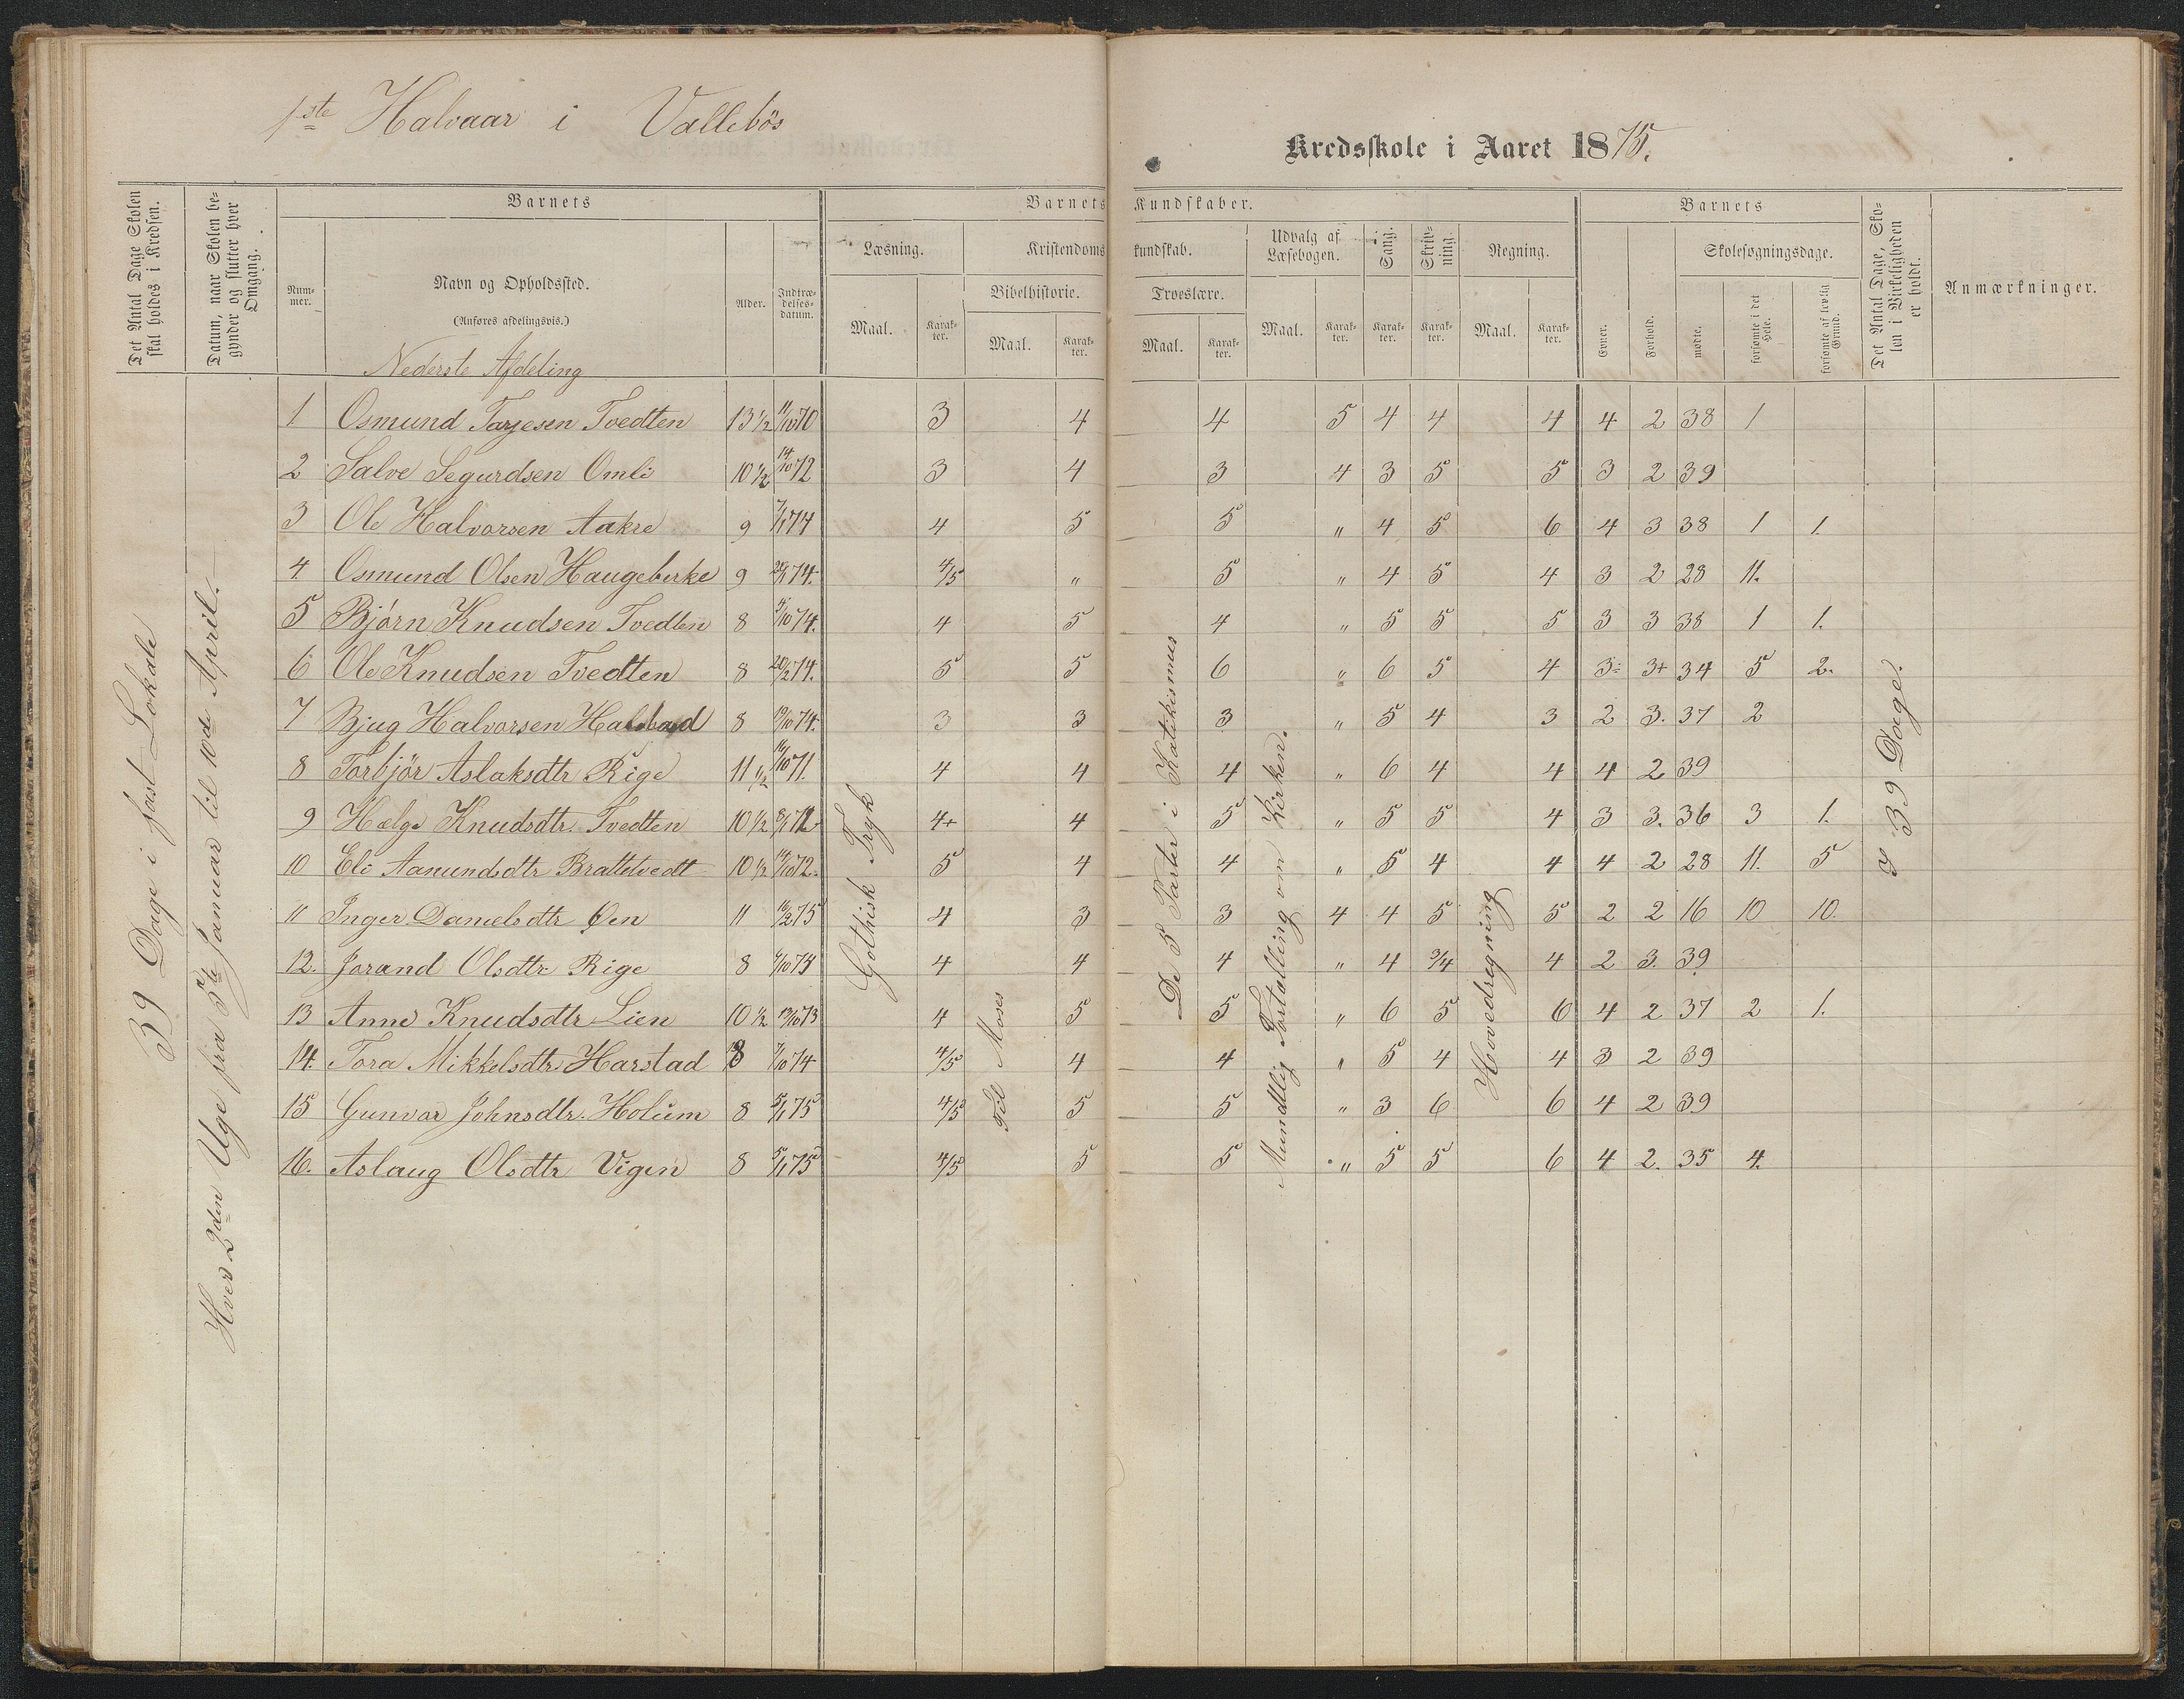 1ste Halvaar i Vallebös Kredsskole i Aaret 1875.
Det Antal Dage Skolen skal holdes i Kredsen.
Datum, naar Skolen begynder og slutter hver Omgang.
Barnets
Num-mer.
Navn og Opholdssted.
(Anføres afdelingsvis.)
Alder.
Indtræ-delses-datum.
Barnets Kundskaber.
Læsning.
Maal. Karak-ter.
Kristendomskundskab.
Bibelhistorie.
Maal. Karak-ter.
Troeslære.
Maal. Karak-ter.
Udvalg af Læsebogen.
Maal. Karak-ter.
Sang. Karak-ter.
Skriv-ning. Karak-ter.
Regning.
Maal. Karak-ter.
Barnets
Evner. Forhold.
Skolesøgningsdage.
mødte. forsømte i det Hele. forsømte af lovlig Grund.
Det Antal Dage, Skolen i Virkeligheden er holdt.
Anmærkninger.
Nederste Afdeling
39 Dage i fast Lokale
Hver 2den Uge fra 5te Januar til 10de April.
Gothisk Tryk
Til Moses
De 5 Parter i Katekismus
Mundtlig Fortælling om Kirken.
Hovedregning
39 Dage.
1 Osmund Tarjesen Tvedten 13 1/2 11/10 70 3 4 4 5 4 4 4 4 2 38 1
2 Salve Segurdsen Omli 10 1/2 14/10 72 3 4 3 4 3 5 5 3 2 39
3 Ole Halvorsen Aakre 9 7/1 74 4 5 5 " 4 5 6 4 3 38 1 1.
4. Osmund Olsen Haugeberke 9 74. 4/5 " 5 " 4 5 4 3 2 28 11.
5 Bjørn Knudsen Tvedten 8 74. 4 5 4 " 5 5 5 3 3 38 1 1.
6 Ole Knudsen Tvedten 8 20/2 74. 5 5 6 " 6 5 4 3÷ 3+ 34 5 2.
7 Bjug Halvorsen Halstad 8 19/10 74. 3 3 3 " 5 4 3 2 3. 37 2
8 Torbjör Aslaksdtr Rige 11 1/2 71. 4 4 4 " 6 4 4 4 2 39
9 Hælge Knudsdtr. Tvedten 10 1/2 8/1 72 4+ 4 5 " 5 5 4 3 3. 36 3 1.
10 Eli Aanundsdtr Brattetvedt 10 1/2 14/10 72. 5 4 4 " 5 4 4 4 2 28 11. 5
11 Inger Danielsdtr Øen 11 16/2 75 4 3 3 4 4 5 5 2 2 16 10 10.
12. Jorand Olsdtr Rige 8 73 4 4 4 " 4 3/4 4 2 3. 39
13 Anne Knudsdtr Lien 10 1/2 13/10 73 4 5 5 " 6 5 6 4 2 37 2 1.
14. Tora Mikkelsdtr Harstad 8 7/10 74 4/5 4 4 " 5 4 4 3 2 39
15 Gunvor Johnsdtr. Holum 8 5/1 75 4/5 5 5 " 3 6 6 4 2 39
16. Aslaug Olsdtr Vigen 8 5/1 75 4/5 5 5 " 5 5 6 4 2. 35 4.